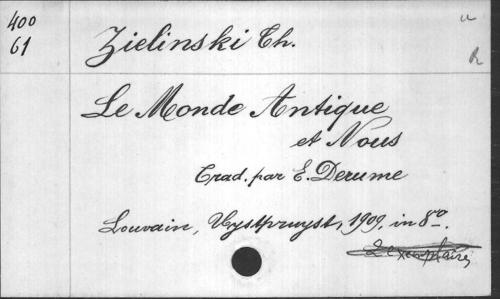 400
61
Zielinski Th.
u
R
Le Monde Antique
et Nous
Trad. par E. Derume
Louvain, Uystpruyst, 1909, in 8º.
2 exemplaires